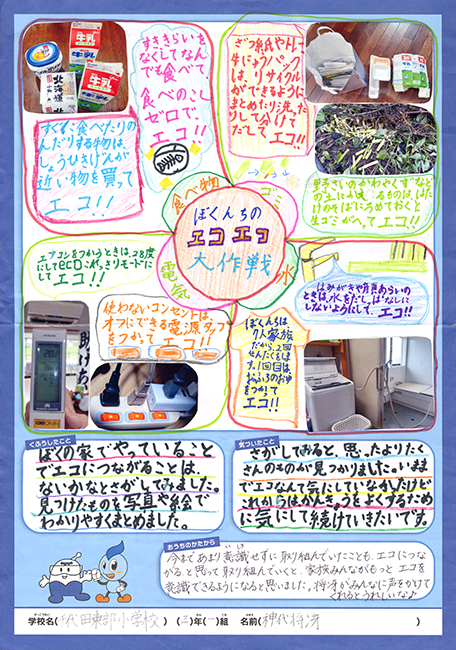 すききらいを
なくしてなん
でも食べて
食べのこし
ゼロで
エコ!!
ざつ紙やトレー
牛にゅうパック
は、リサイクル
ができるように
まとめたり洗った
りして分けて
だして エコ!!
牛乳
牛乳
北海道
すぐに食べたりの
んだりする物は、
しょうひきげんが
近い物を買って
エコ!!
食べ物
ゴミ
ぼくんちの
エコエコ
大作戦
電気
水
野さいのかわやくずなど
の土にかえるものは、はた
けのそばにうめておくと
生ゴミがへってエコ!!
エアコンをつかうときは、28度
にしてecoこれっきりモードにし
て エコ!!
使わないコンセントは、
オフにできる電源タップ
をつかって エコ!!
はみがきや顔あらいの
ときは、水をだしっぱなしに
しないようにして、エコ!!
ぼくんちは、
7人家族
だから、2回
せんたくをしま
す。1回目は、
おふろのお湯
をつかって
エコ!!
くふうしたこと
ぼくの家でやっていること
でエコにつながることは、
ないかなとさがしてみました。
見つけたものを写真や絵で
わかりやすくまとめました。
気づいたこと
さがしてみると、思ったよりたく
さんのものが見つかりました。いまま
でエコなんて気にしていなかったけど
これからはかんきょうをよくするため
に気にして続けていきたいです。
おうちのかたから
今まであまり意識せずに取り組んでいたことも、エコにつな
がると思って取り組んでいくと、家族みんながもっと エコを
意識できるようになると思いました。将冴がみんなに声をかけて
くれるとうれしいな♪
学校名(千代田東部小学校) (三)年(一)組 名前(神代将冴)